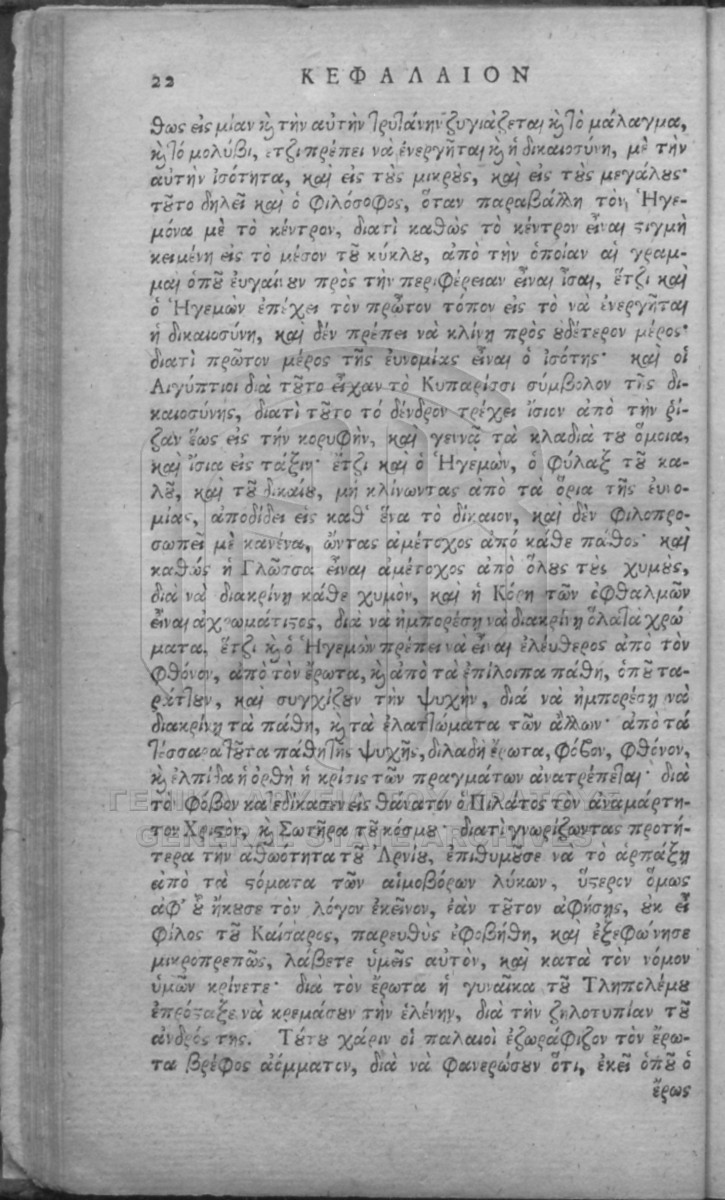 22 ΚΕΦΑΛΑΙΟΝ
θως εἰς μίαν καὶ τὴν αὐτὴν τρυτάνην ζυγιάζεται καὶ τὸ μάλαγμα,
καὶ τό μολύβι, ἔτζι πρέπει νὰ ἐνεργῆται καὶ ἡ δικαιοσύνη, μὲ τὴν
αὐτὴν ἰσότητα, καὶ εἰς τοὺς μικροὺς, καὶ εἰς τοὺς μεγάλους·
τοῦτο δηλεῖ καὶ ὁ Φιλόσοφος, ὅταν παραβάλλη τὸν, Ἡγε-
μόνα μὲ τὸ κέντρον, διατὶ καθὼς τὸ κέντρον εἶναι στιγμὴ
κειμένη εἰς τὸ μέσον τοῦ κύκλου, ἀπὸ τὴν ὁποίαν αἱ γραμ-
μαὶ ὁποῦ ἐυγαίνουν πρὸς τὴν περιφέρειαν εἶναι ἴσαι, ἔτζι καὶ
ὁ Ἡγεμὼν ἐπέχει τὸν πρῶτον τόπον εἰς τὸ νὰ ἐνεργῆται
ἡ δικαιοσύνη, καὶ δέν πρέπει νὰ κλίνῃ πρὸς οὐδέτερον μέρος·
διατὶ πρῶτον μέρος τῆς ἐυνομίας εἶναι ὁ ἰσότης· καὶ οἱ
Αἰγύπτιοι διὰ τοῦτο εἶχαν τὸ Κυπαρίσσι σύμβολον τῆς δι-
καιοσύνης, διατὶ τοῦτο τό δένδρον τρέχει ἴσιον ἀπὸ τὴν ῥί-
ζαν ἕως εἰς τήν κορυφὴν, καὶ γεννᾷ τὰ κλαδιὰ του ὅμοια,
καὶ ἴσια εἰς τάξιν· ἔτζι καὶ ὁ Ἡγεμὼν, ὁ Φύλαξ τοῦ κα-
λοῦ, καὶ τοῦ δικαίου, μὴ κλίνωντας ἀπὸ τὰ ὅρια τῆς ἐυνο-
μίας, ἀποδίδει εἰς καθ' ἕνα τὸ δίκαιον, καὶ δὲν φιλοπρο-
σωπεῖ μὲ κανένα, ὤντας ἀμέτοχος ἀπό κάθε πάθος· καὶ
καθὼς ἡ Γλῶσσα εἶναι ἀμέτοχος ἀπὸ ὅλους τοὺς χυμοὺς,
διὰ νὰ διακρίνῃ κάθε χυμὸν, καὶ ἡ Κόρη τῶν ὀφθαλμῶν
εἶναι ἀχρωμάτιστος, διὰ νὰ ἠμπορέσῃ νὰ διακρίνῃ ὅλα τὰ χρώ
ματα, ἔτζι καὶ ὁ Ἡγεμὼν πρέπει νὰ εἶναι ἐλέυθερος ἀπὸ τὸν
φθόνον, ἀπὸ τὸν ἔρωτα, καὶ ἀπὸ τὰ ἐπίλοιπα πάθη, ὁποῦ τα-
ράττουν, καὶ συγχίζουν τὴν ψυχὴν, διά νὰ ἠμπορέσῃ νὰ
διακρίνῃ τὰ πάθη, καὶ τὰ ἐλαττώματα τῶν ἄλλων· ἀπὸ τά
τέσσαρα τοῦτα πάθη τῆς ψυχῆς, δηλαδὴ ἔρωτα, φόβον, φθόνον,
καὶ ἐλπίδα ἡ ὀρθὴ ἡ κρίσις τῶν πραγμάτων ἀνατρέπεται· διὰ
τὸ φόβον καὶ ἐδίκασεν εἰς θάνατόν ὁ Πιλάτος τὸν ἀναμάρτη-
τον Χριστὸν, καὶ Σωτῆρα τοῦ κόσμου· διατὶ γνωρίζωντας προτή-
τερα τὴν ἀθωότητα τοῦ Ἀρνίου, ἐπιθυμοῦσε νὰ τὸ ἁρπάξῃ
ἀπὸ τὰ στόματα τῶν αἱμοβόρων λύκων, ὕστερον ὅμως
ἀφ' οὗ ἤκουσε τὸν λόγον ἐκεῖνον, ἐάν τοῦτον ἀφήσῃς, οὐκ εἶ
φίλος τοῦ Καίσαρος, παρευθὺς ἐφοβήθη, καὶ ἐξεφώνησε
μικροπρεπῶς, λάβετε ὑμεῖς αὐτὸν, καὶ κατὰ τὸν νόμον
ὑμῶν κρίνετε· διὰ τὸν ἔρωτα ἡ γυναῖκα τοῦ Τληπολέμου
ἐπρόσταξε νὰ κρεμάσουν τὴν ἑλένην, διὰ τὴν ζηλοτυπίαν τοῦ
ἀνδρός της. Τούτου χάριν οἱ παλαιοὶ ἐζωράφιζον τὸν ἔρω-
τα βρέφος ἀόμματον, διὰ νὰ φανερώσουν ὅτι, ἐκεῖ ὁποῦ ὁ
ἔρως
ΓΕΝΙΚΑ ΑΡΧΕΙΑ ΤΟΥ ΚΡΑΤΟΥΣ
GENERAL STATE ARCHIVES